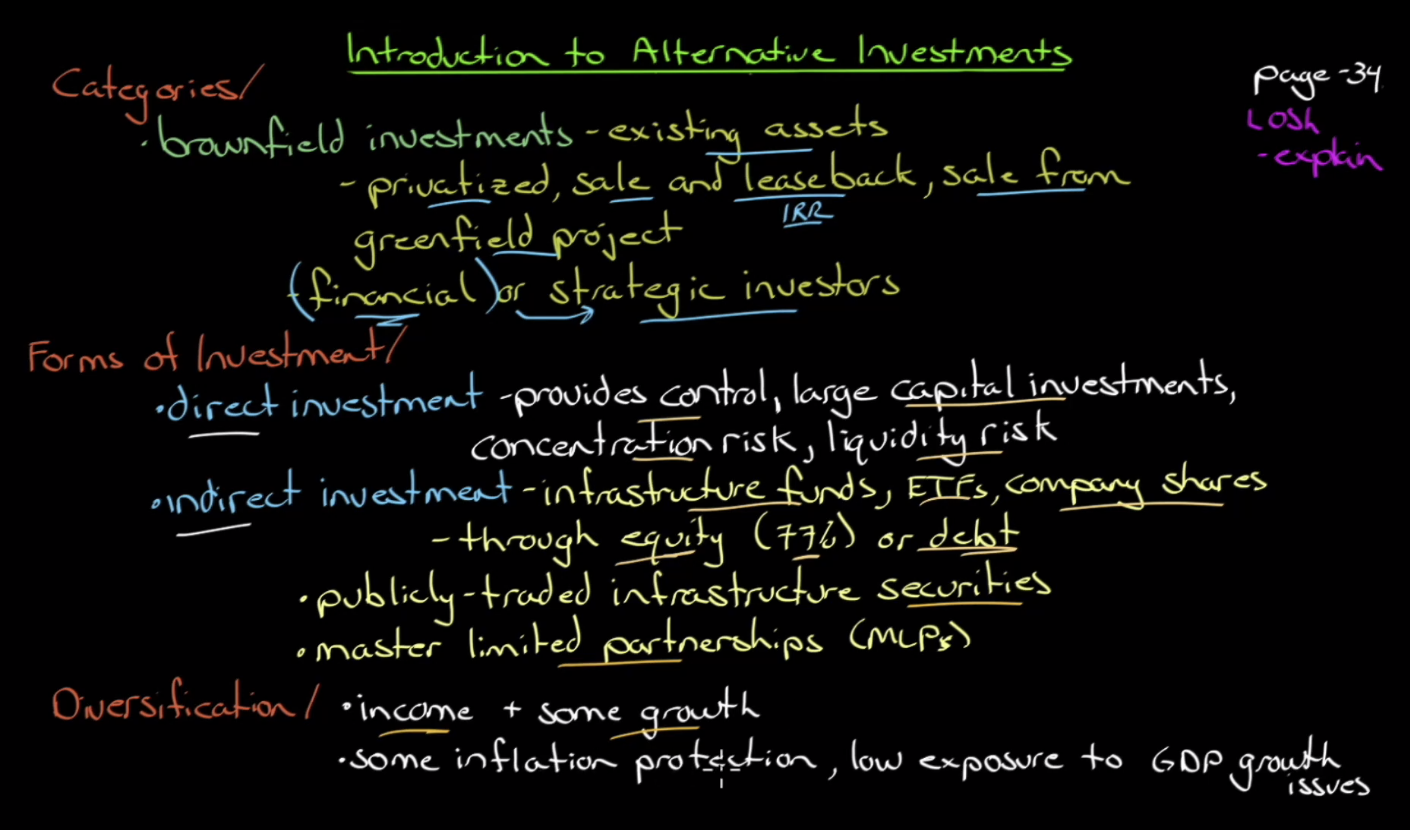 Introduction to Alternative Investments
page -34
LOSh
- explain
Categories/
· brownfield investments - existing assets
- privatized, sale and leaseback, sale from
IRR
greenfield project
(financial) or strategic investors
Forms of Investment/
· direct investment - provides control, large capital investments,
concentration risk, liquidity risk
· indirect investment - infrastructure funds, ETFs, company shares
- through equity (77%) or debt
· publicly-traded infrastructure securities
· master limited partnerships (MLPs)
Diversification/ · income + some growth
· some inflation protection, low exposure to GDP growth
issues